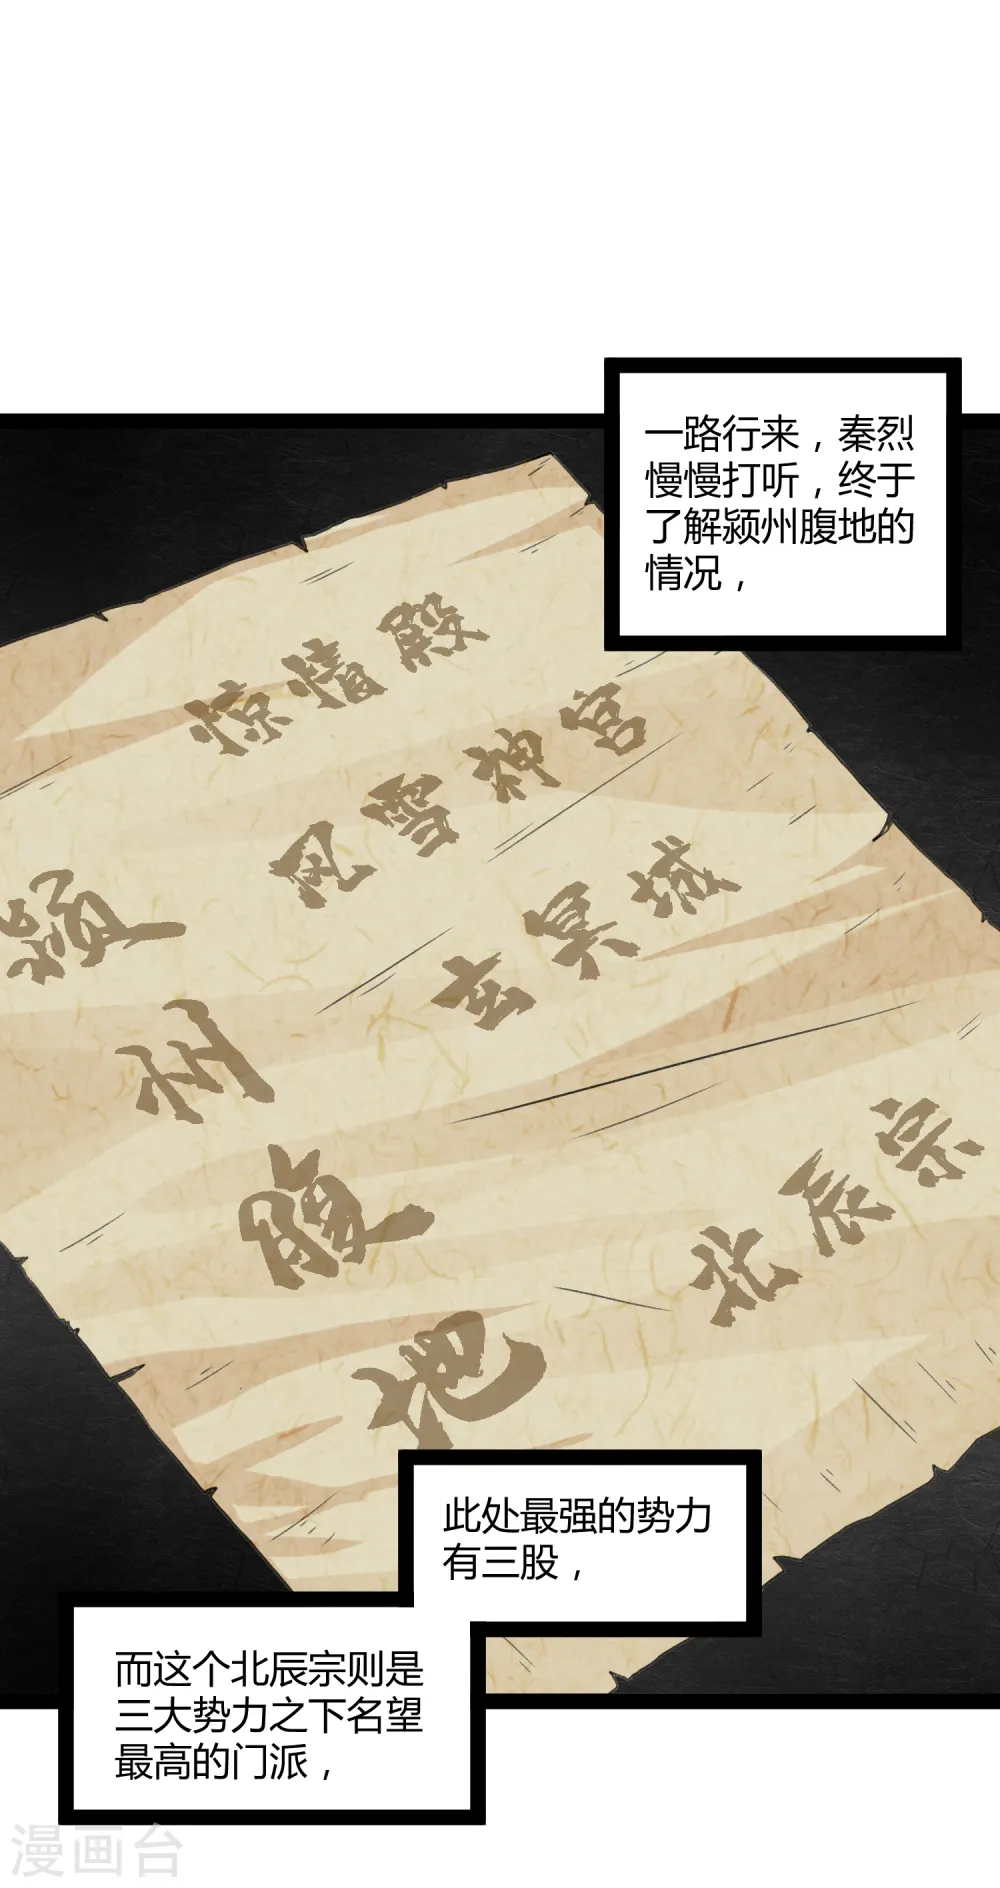 一路行来，秦烈
慢慢打听，终于
了解颍州腹地的
情况，
惊情殿
风雪神宫
玄冥域
颍州腹地
北辰宗
此处最强的势力
有三股，
而这个北辰宗则是
三大势力之下名望
最高的门派，
漫画台